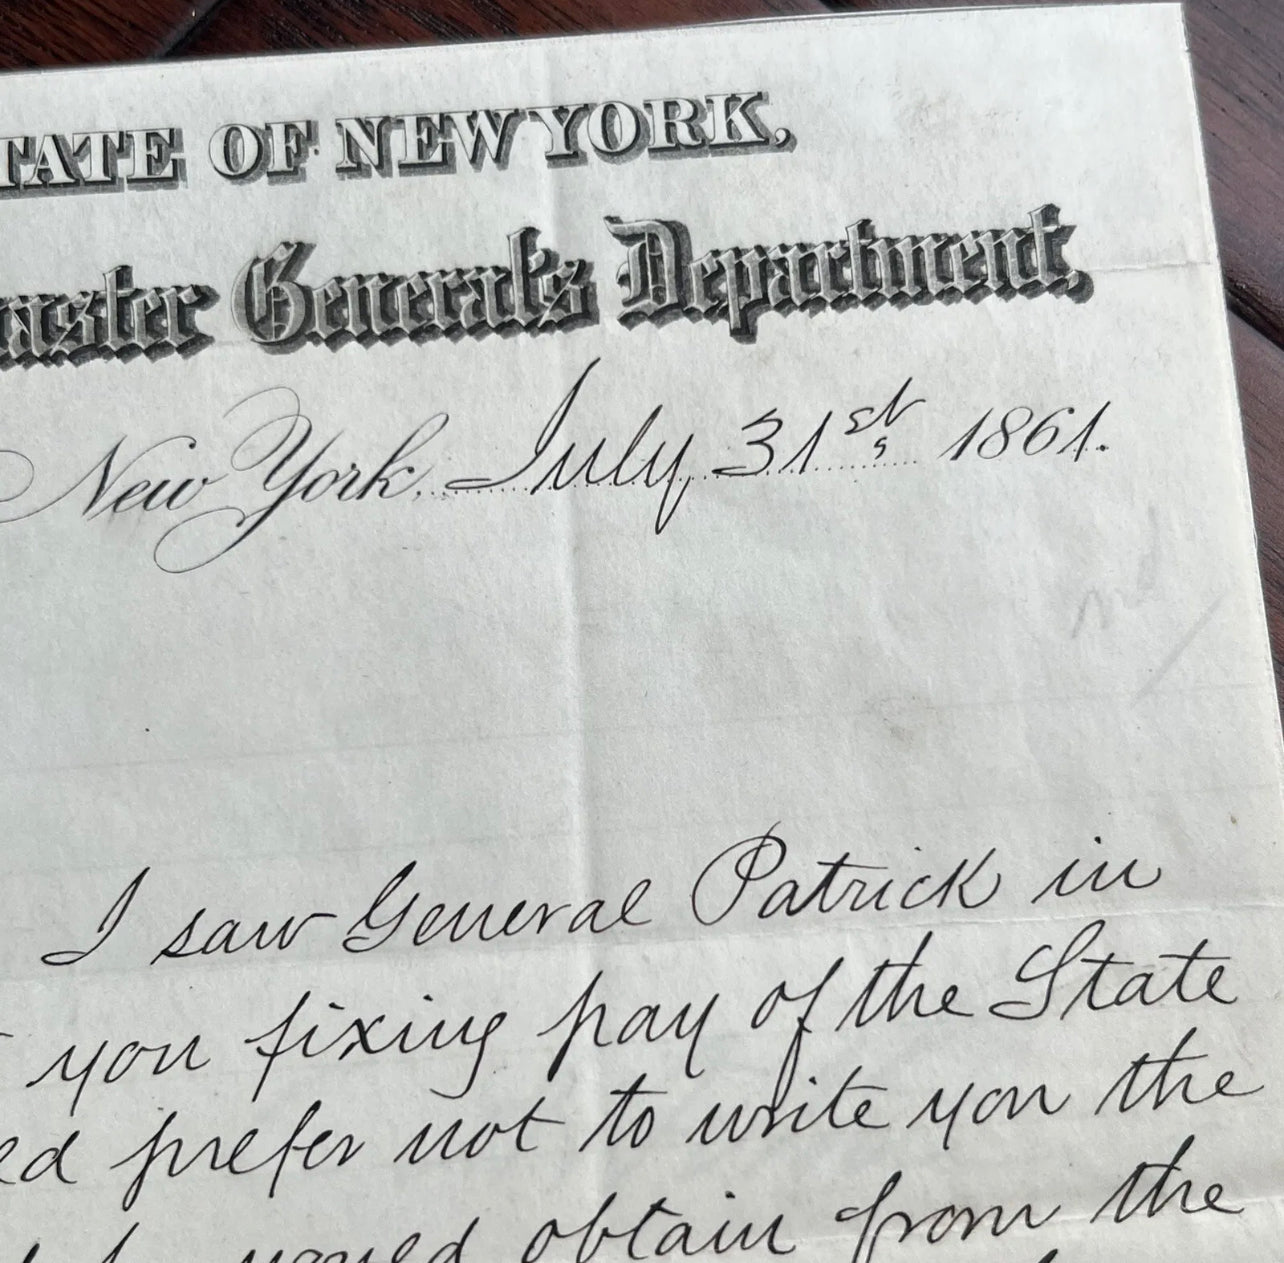 TATE OF NEW YORK,
aster General's Department,
New York, July 31st 1861.
I saw General Patrick in
you fixing pay of the State
ed prefer not to write you the
obtain from the